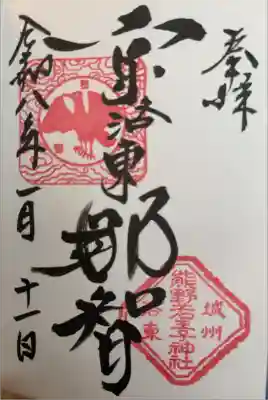 奉拝
京洛東
那智
令和八年一月十一日
城州
熊野若王子神社
洛東